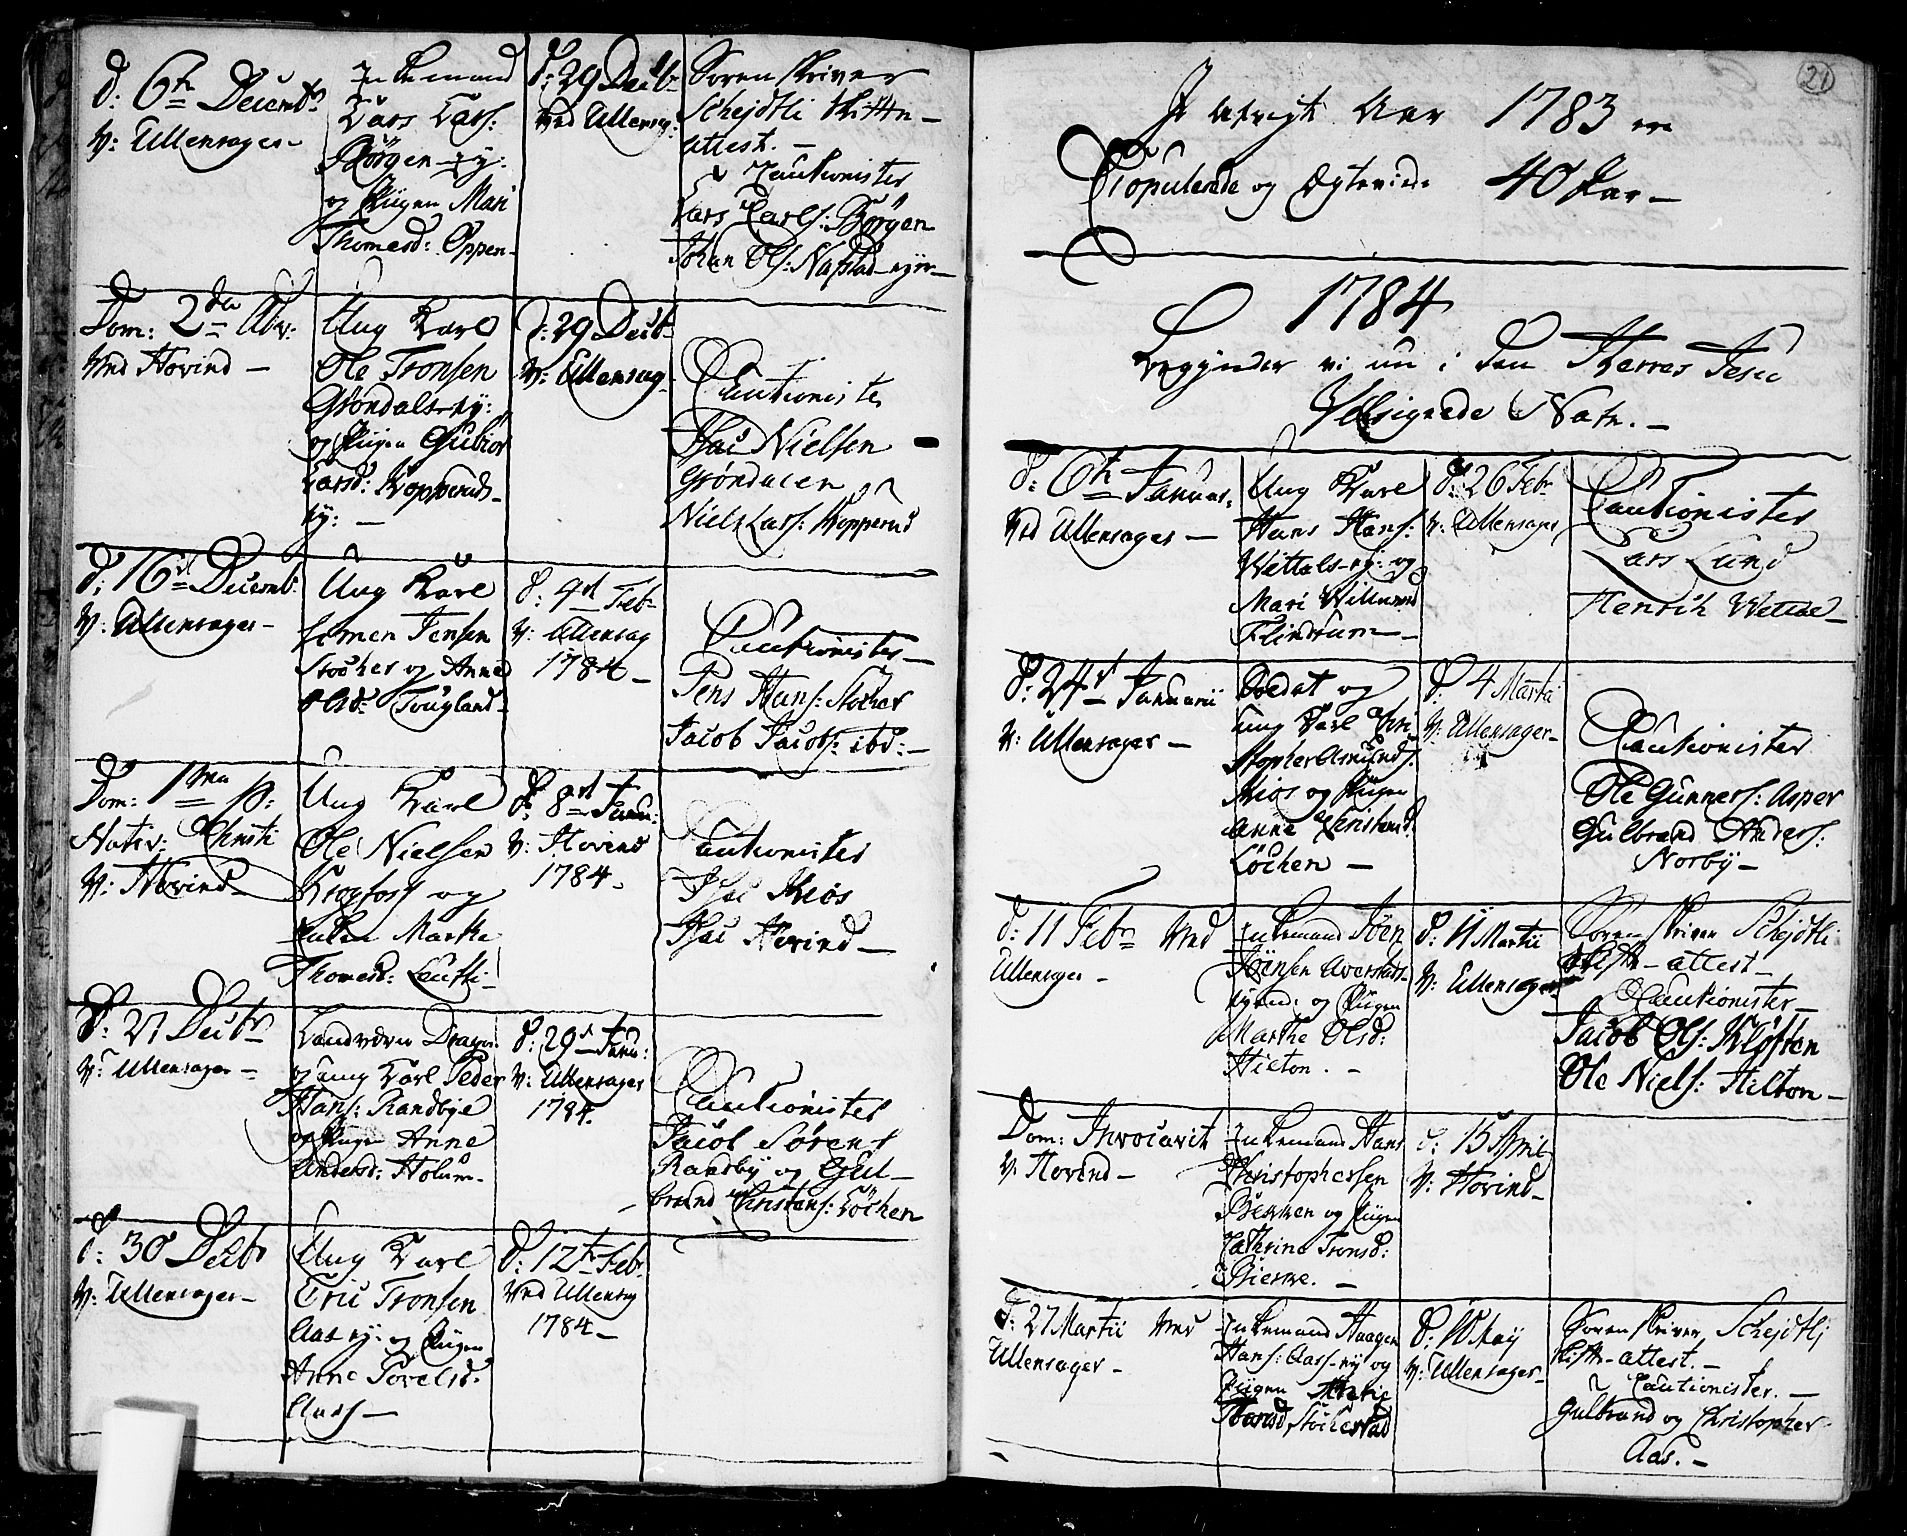 d: 6te Decembr
V: Ullensager
Enkemand
Lars Lars:
Børgen ey:
og Piigen Mari
Thomasd: Oppen
d: 29 Decb
Ved Ullensag:
Sorenskriver
Schejdtli Skifte
attest.
Cautionister
Lars Carls: Børgen
Johan Ols: Nafstad eyer
Dom: 2da Adv:
Ved Hovind
Ung Karl
Ole Tronsen
Grøndals ey:
og Piigen Gubiør
Larsd: Kopperuds
ey:
d: 29 Decb
V: Ullensag
Cautionister
Isac Nielsen
Grøndalen
Niels Lars: Kopperud
d: 16de Decemb:
V: Ullensager
Ung Karl
Simen Jensen
Stocker og Anne
Olsd: Tougland
d: 4de Feb
V: Ullensag
1784
Cautionister
Jens Hans: Stocker
Jacob Jacobs: ibd:
Dom: 1ma p:
Nativ: Christi
V: Hovind
Ung Karl
Ole Nielsen
Krogfoss og
Marthe
Thomesd:
d: 8de Janu:
V: Hovind
1784
Cautionister
Isac Kiøs
Isac Hovind
d: 27 Decbr
V: Ullensager
Landværn Dragon
og ung Karl Peder
Hans: Randbye
og Piige Anne
Andersd: Holum
d: 29de Janu:
V: Ullensager
1784.
Cautionister
Jacob Sørens
Randby og Gul-
brand Christens: Løchen
d: 30 Decbr
V: Ullensager
Ung Karl
Eric Tronsen
Aas ey: og Piigen
Anne Povelsd:
Aars
d: 12te Feb:
Ved Ullensag
1784
21
I afvigte Aar 1783 ere
Copulerede og Egteviede 40 Par
1784
begynder vi nu i den Herres Jesu
Velsignede Navn.
d: 6te Januar:
Ved Ullensager
Ung Karl
Hans Hans:
Wettals ey: og
Mari
Flindrum
d: 26 Feb:
V: Ullensager
Cautionister
Lars Lund
Henrik Wettal
d: 24de Januarii
V: Ullensager
Soldat og
ung Karl Chri-
stopher Amunds:
Kiøs og Piigen
Anne Christensd:
Løchen
d: 4 Martii
V: Ullensager
Cautionister
Ole Gunners: Asper
Gulbrand Anders:
Norby
d: 11 Febr Ved
Ullensager
Enkemand Jøen
Jøensen Averstad-
eyend: og Piigen
Marthe Olsd:
Hilton.
d: 11 Martii
V: Ullensager
Sorenskriver Schejdtli
Skifte attest
Cautionister
Jacob Ols: Kløften
Ole Niels: Hilton
Dom: Invocavit
V: Hovind
Enkemand Hans
Christophersen
Bekken og Piigen
Cathrine Tronsd:
Bierke.
d: 15 April
V: Hovind
d: 27 Martii Ved
Ullensager
Enkemand Haagen
Hans: Aass ey og
Piigen Marie
Hansd Stockestad
d: 10 May
V: Ullensager
Sorenskriver Schejdtlj
Skifte attest.
Cautionister.
Gulbrand og Christopher
Aas.